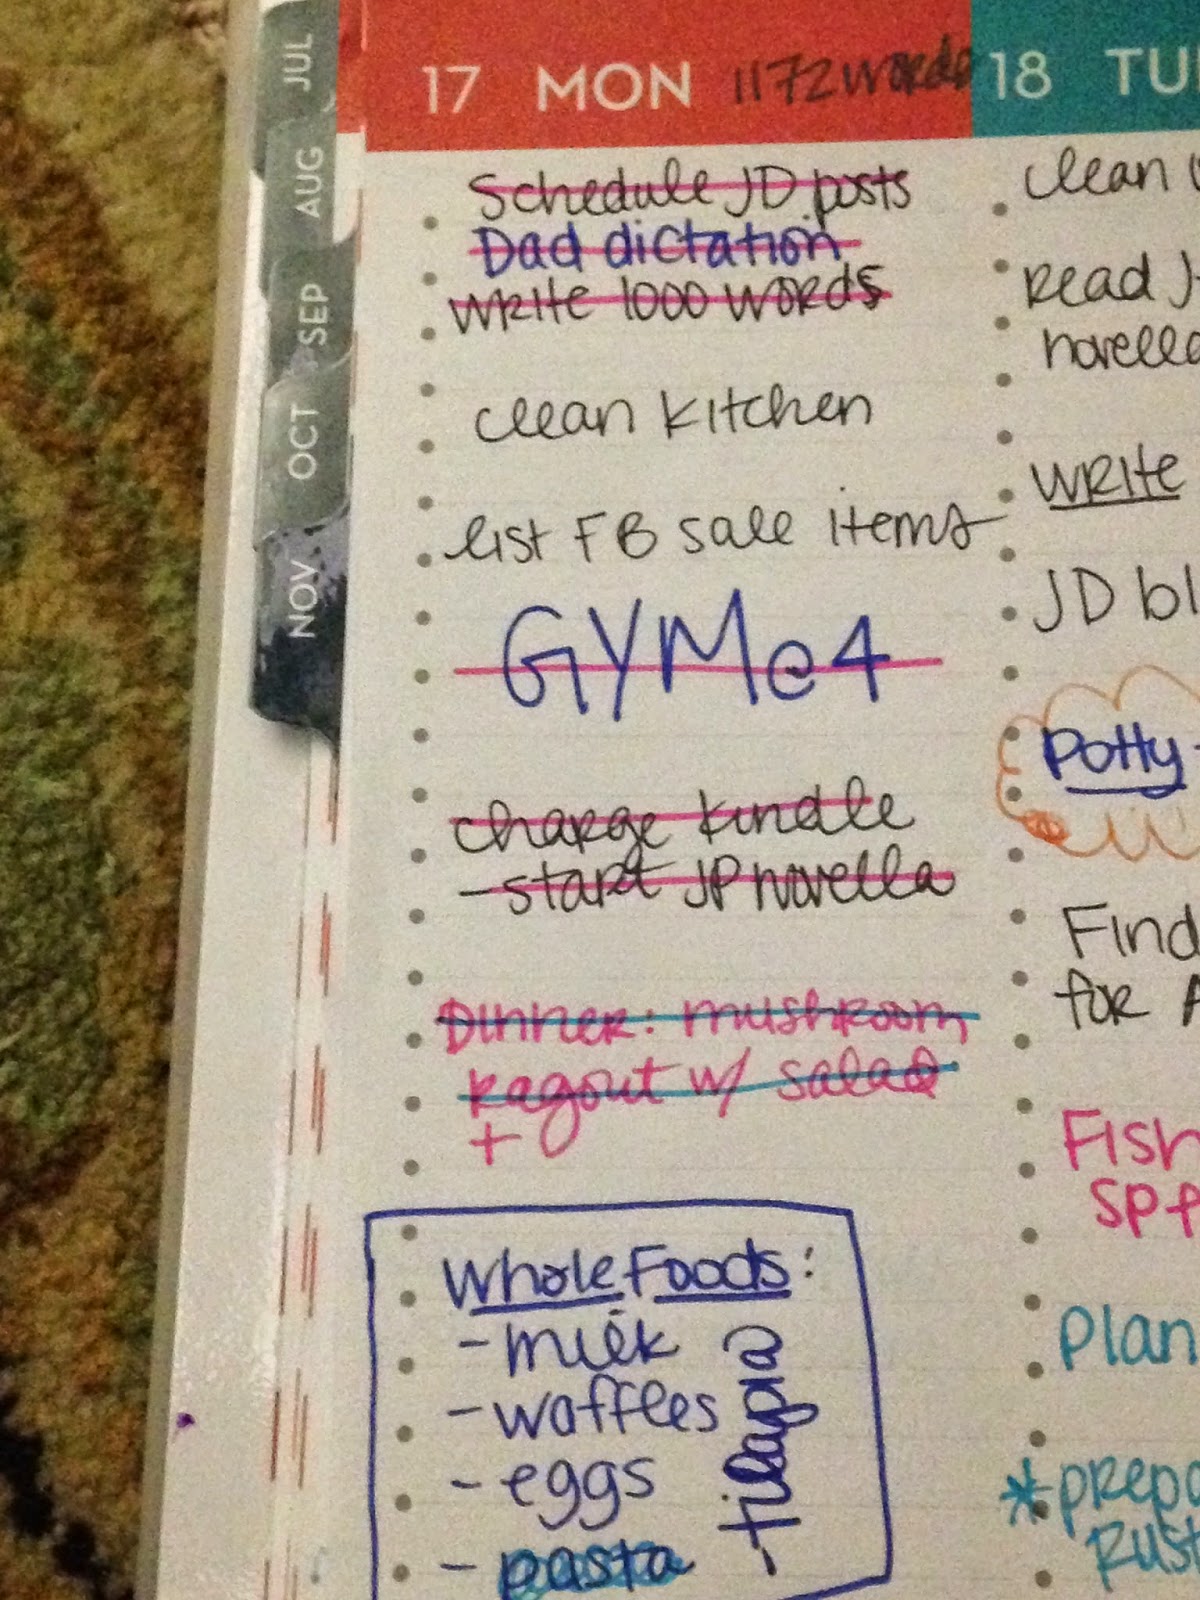 JUL
AUG
SEP
OCT
NOV
17 MON 1172 words
Schedule JD posts
Dad dictation
write 1000 words
clean kitchen
list FB sale items
GYM @ 4
charge kindle
- start JP novella
Dinner: mushroom
ragout w/ salad
+
Whole Foods:
- milk
- waffles
- eggs
- pasta
- tilapia
18 TU
clean
read J
novella
write
JD bl
Potty
Find
for A
Fish
sp
Plan
* prepa
Rust